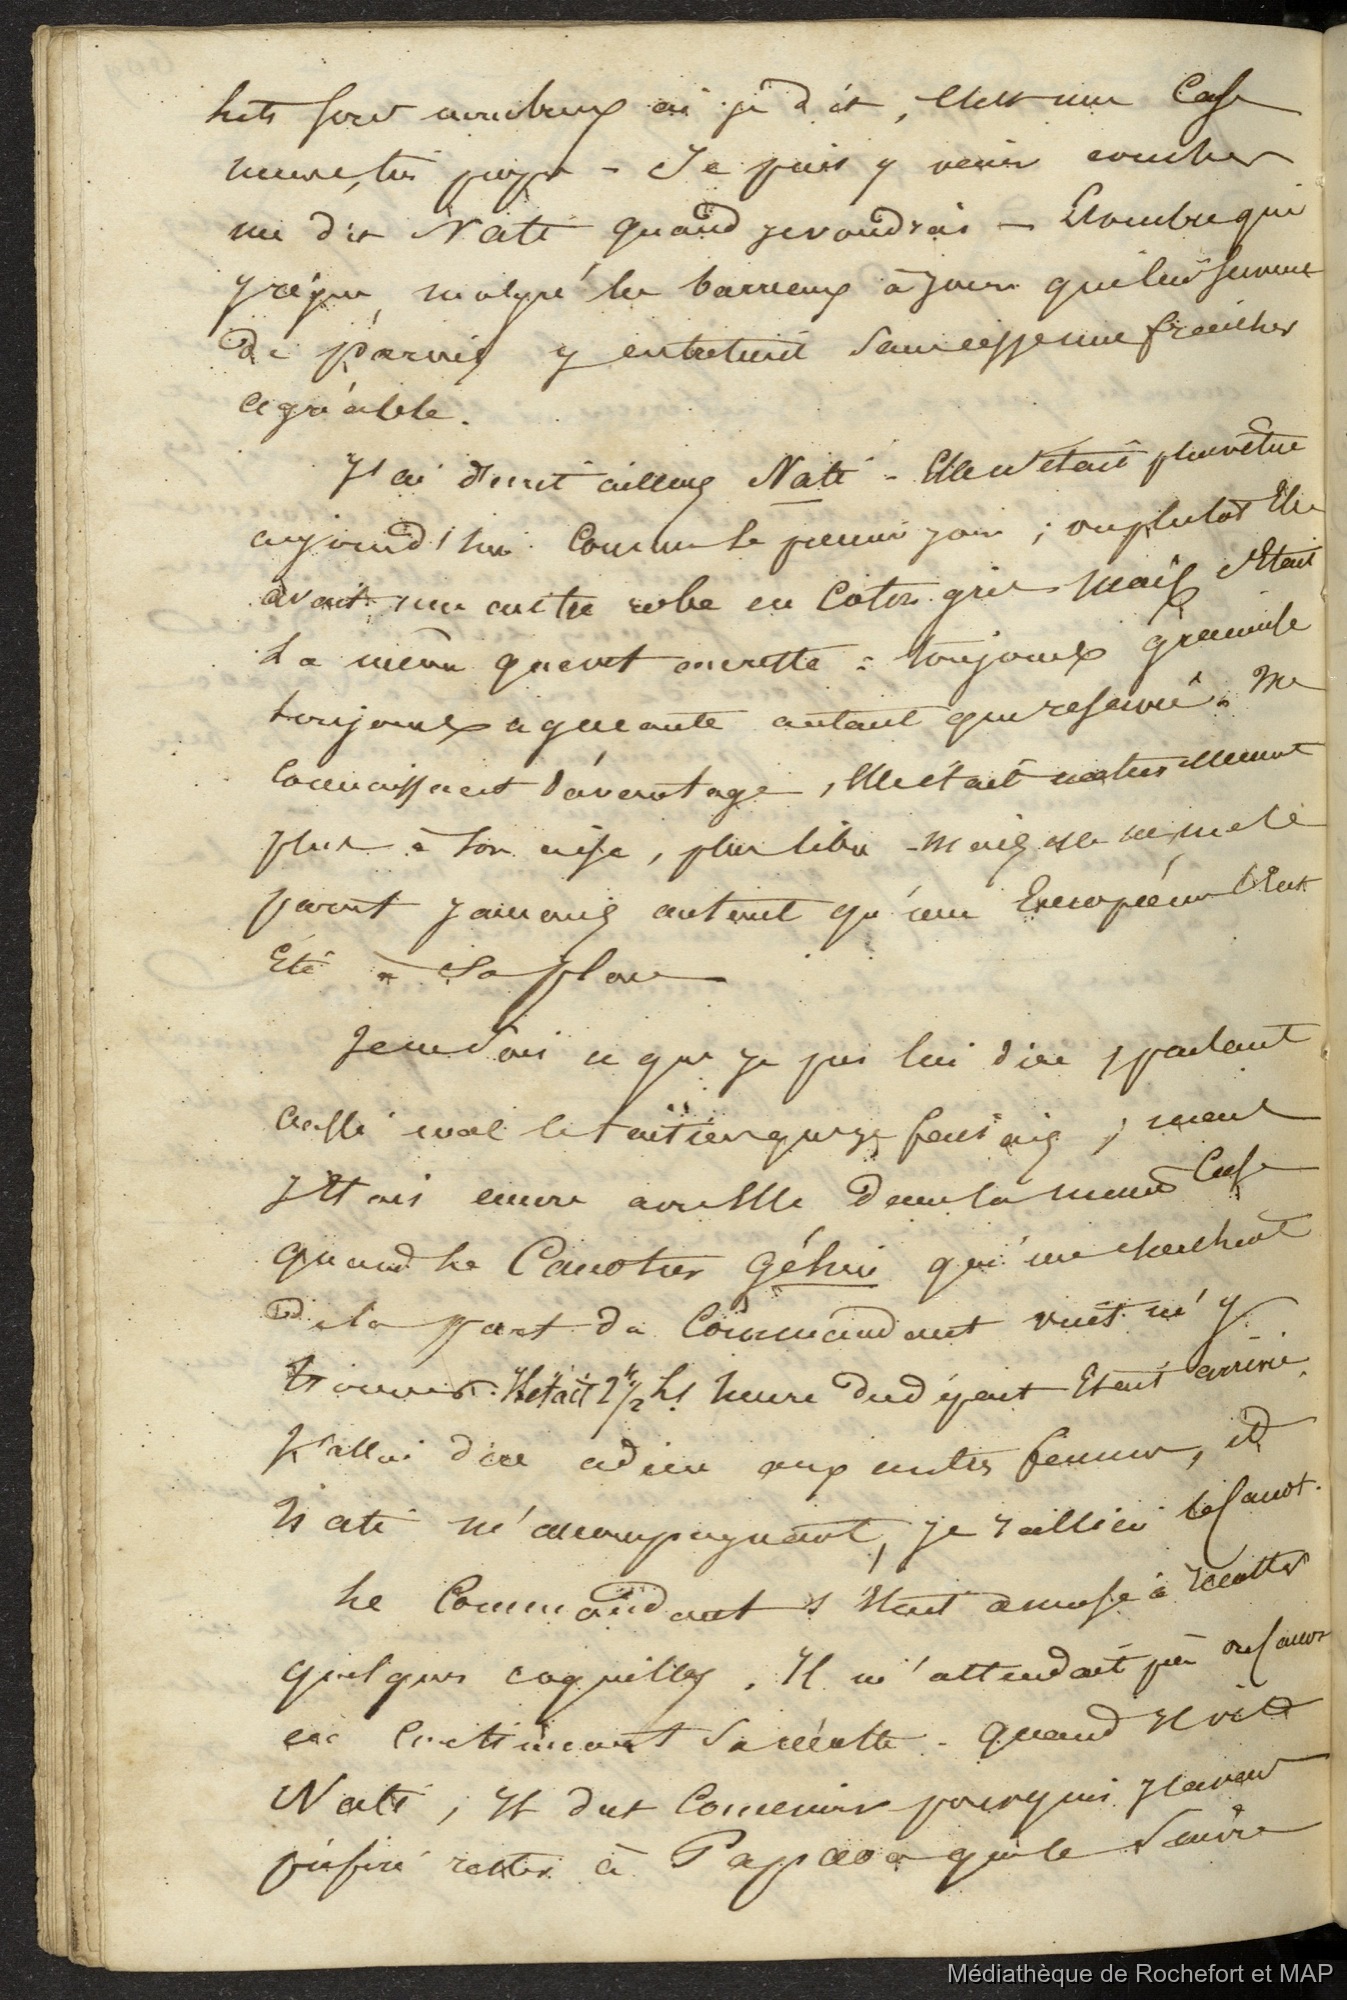 lits sont nombreux ai je dit, c'est une Case
neuve, très propre - Je puis y venir coucher
me dit Nati quand je voudrais - L'ombre qui
y règne, malgré les barreaux à jour qui leur servent
de parois y entretient sans cesse une fraicheur
agréable.
J'ai décrit ailleurs Nati - Elle n'était plus vêtue
aujourd'hui comme le premier jour ; ou plutôt Elle
avait une autre robe en coton gris mais c'était
la même quant au reste = toujours gracieuse
toujours agaçante autant que réservée. Me
connaissant davantage, Elle était naturellement
plus à son aise, plus libre - mais elle ne me le
parut jamais autant qu'une Européenne l'eut
Été à sa place
Je ne sais ce que je pus lui dire, parlant
aussi mal le taïtien que je faisais ; mais
J'étais encore avec Elle dans la même Case
quand le Canotier Géhin qui me cherchait
de la part du Commandant vint m'y
trouver. Il était 2 h 1/2 L'heure du départ Etant arrivée,
J'allai dire adieu aux autres femmes, et
Nati m'accompagnant, je ralliai le Canot.
Le Commandant s'était amusé à récolter
quelques coquilles. Il m'attendait au Canot
en continuant sa récolte - Quand Il vit
Nati, Il dut comprendre pourquoi j'avais
préféré rester à Papaoa que le suivre
Médiathèque de Rochefort et MAP